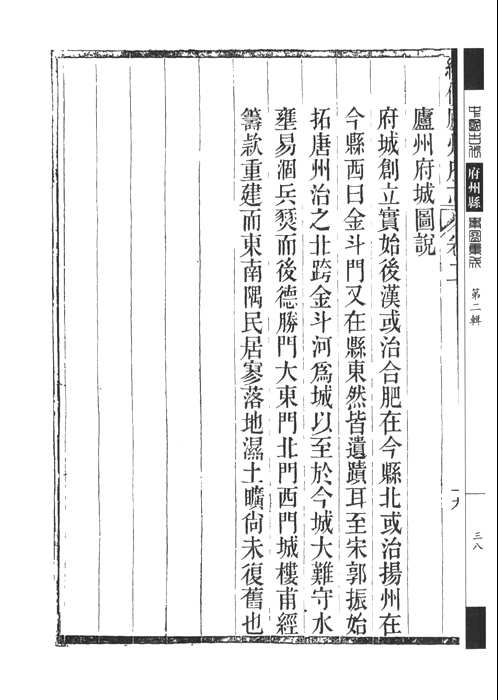 府州縣
第二輯
三八
廬州府城圖說
府城創立實始後漢或治合肥在今縣北或治揚州在
今縣西曰金斗門又在縣東然皆遺蹟耳至宋郭振始
拓唐州治之北跨金斗河爲城以至於今城大難守水
壅易涸兵燹而後德勝門大東門北門西門城樓甫經
籌款重建而東南隅民居寥落地濕土曠尚未復舊也